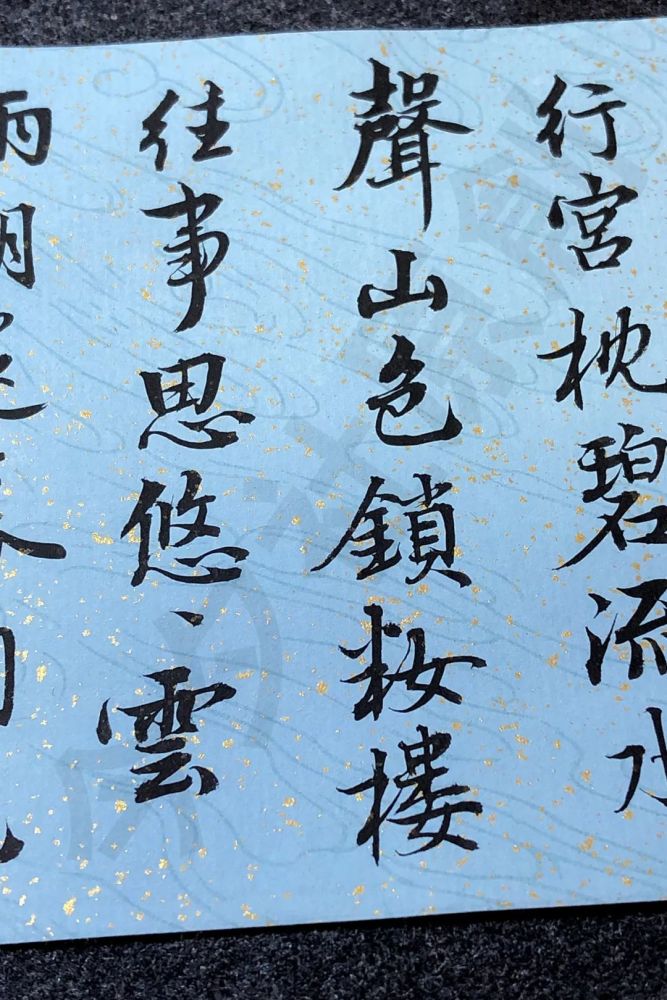 行宮枕碧流水
聲山色鎖籹樓
往事思悠〻雲
雨